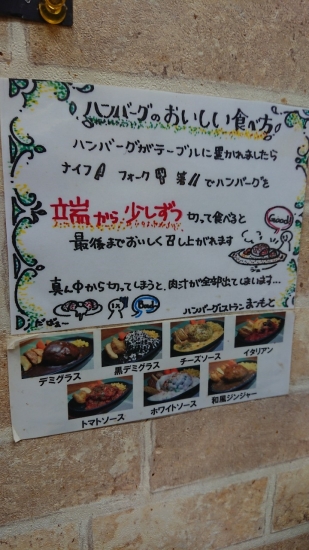 ハンバーグのおいしい食べ方
ハンバーグがテーブルに置かれましたら
ナイフ フォーク 箸 でハンバーグを
端から少しずつ 切って食べると
Good!
最後までおいしく召し上がれます
真ん中から切ってしまうと、肉汁が全部出てしまいます…
Bad..
ハンバーグレストラン まつもと
デミグラス
黒デミグラス
チーズソース
イタリアン
トマトソース
ホワイトソース
和風ジンジャー